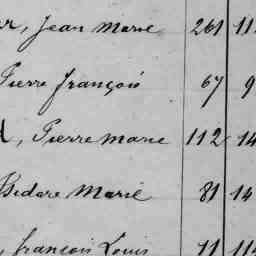 , Jean Marie 261 11
Pierre François 67 9
, Pierre Marie 112 14
Isidore Marie 81 14
, François Louis 71 114